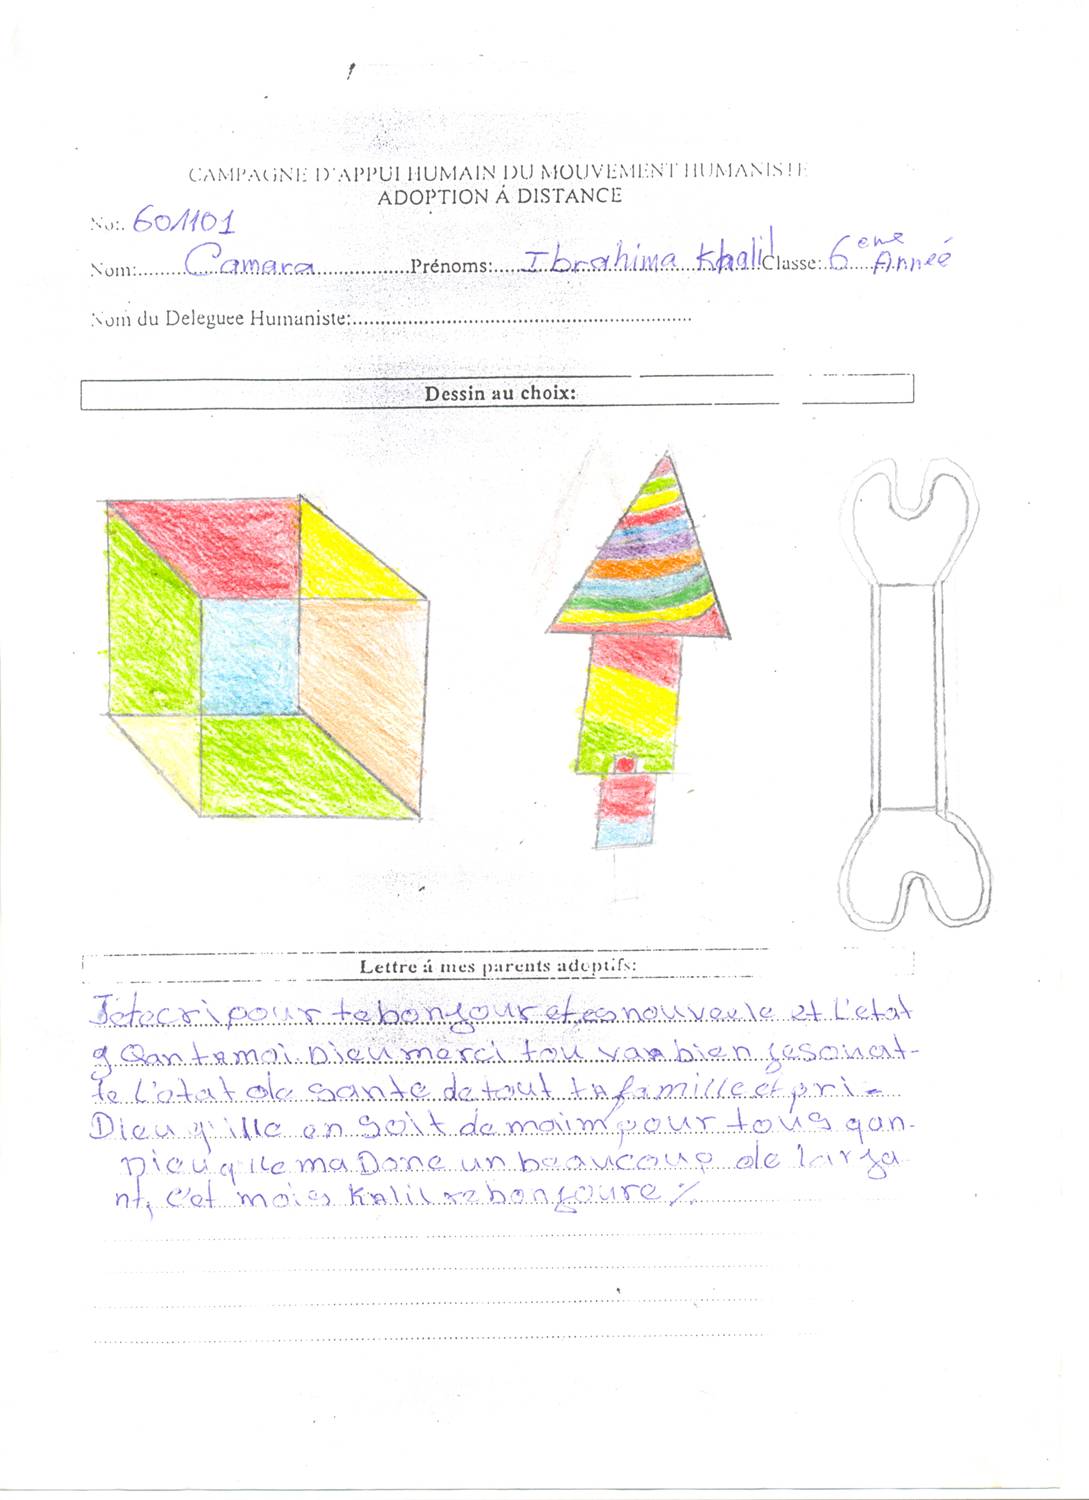 CAMPAGNE D'APPUI HUMAIN DU MOUVEMENT HUMANISTE
ADOPTION Á DISTANCE
No:. 601101
Nom:......Camara..................Prénoms:.....Ibrahima Khalil Classe:.6eme Année
Nom du Deleguee Humaniste:..................................................................
Dessin au choix:
Lettre á mes parents adoptifs:
Je tecri pour te bonjour et es nouvele et L'etat
Qant a moi Dieu merci tou va bien je souat-
te L'etat de sante de tout ta famille et pri-
Dieu q'ille en Soit de maim pour tous qan.
Dieu q ile ma Done un beaucoup de larja
nt, C'et mois Kalil bonjoure